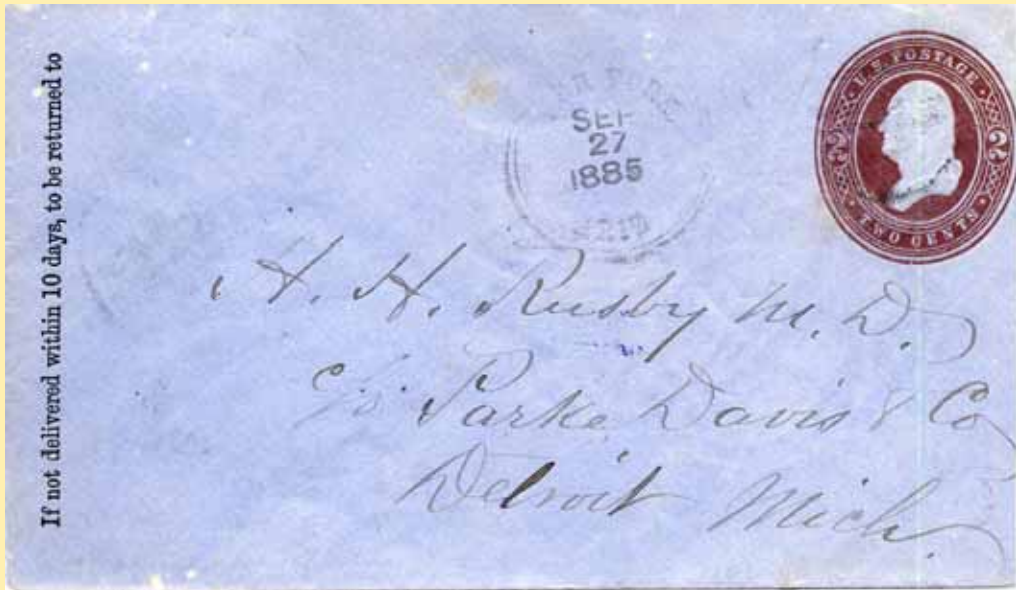 If not delivered within 10 days, to be returned to
SEP
27
1885
U.S. POSTAGE
2 2
TWO CENTS
A. H. Rusby M.D.
c/o Parke Davis & Co
Detroit Mich.